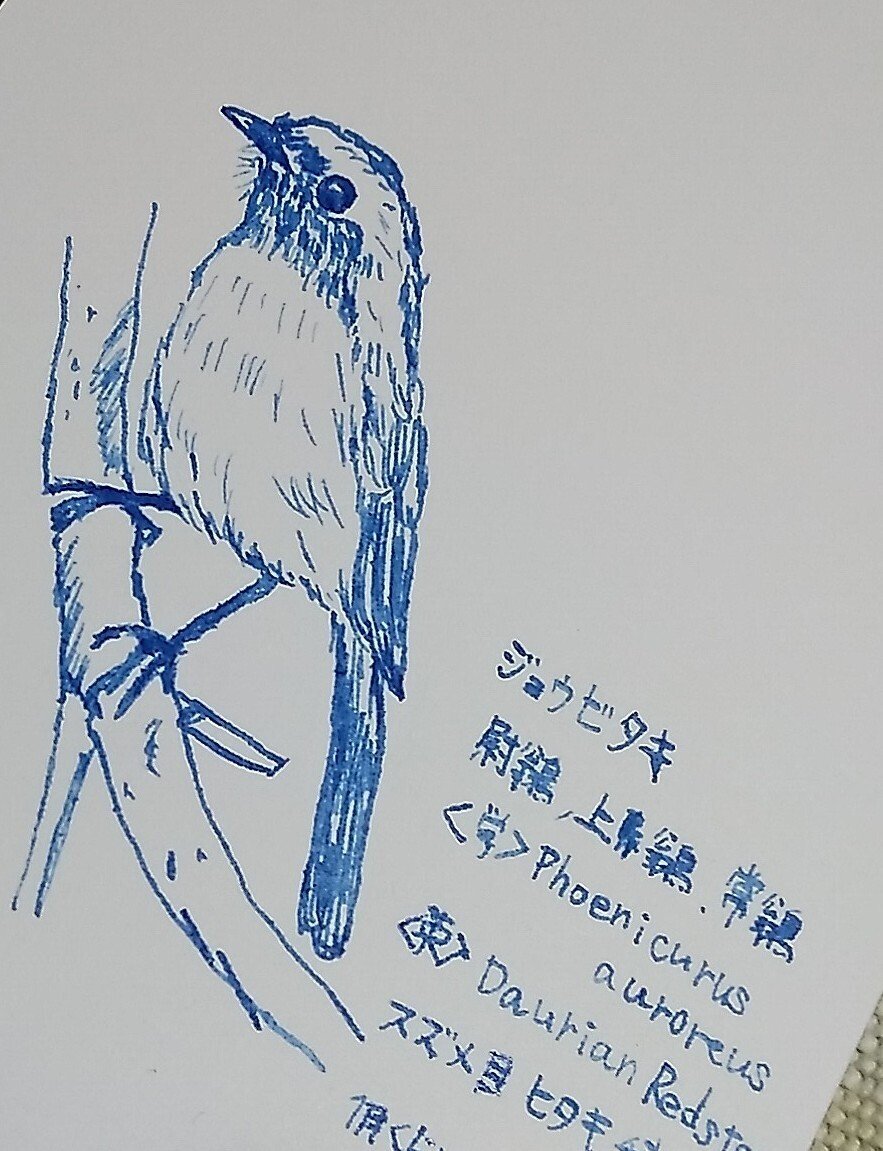 ジョウビタキ
尉鶲、上鶲、常鶲
<学> Phoenicurus
auroreus
<英> Daurian
スズメ目 ヒタキ